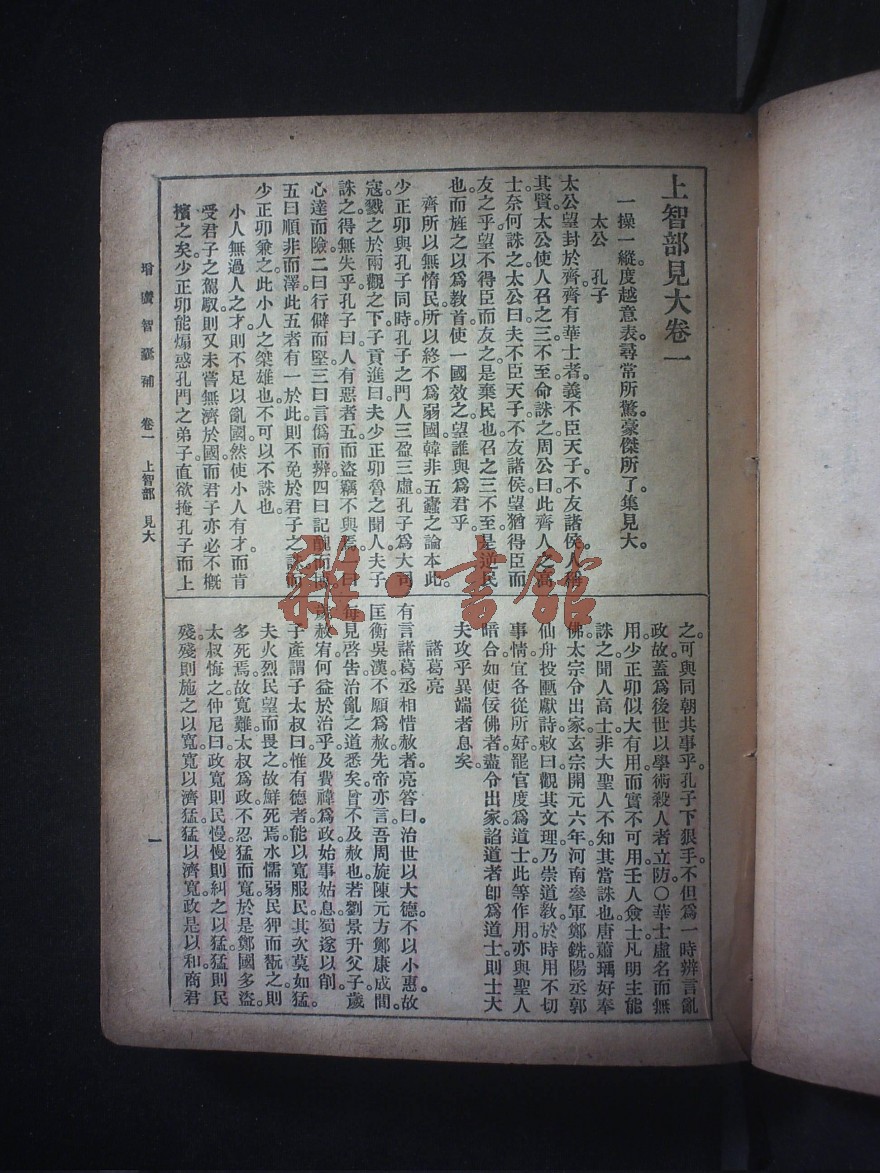 上智部見大卷一
一操一縱。度越意表。尋常所驚。豪傑所了。集見大。
太公 孔子
太公望封於齊。齊有華士者。義不臣天子。不友諸侯。人稱
其賢。太公使人召之三。不至。命誅之。周公曰。此齊人之高
士。奈何誅之。太公曰。夫不臣天子。不友諸侯。望猶得臣而
友之乎。望不得臣而友之。是棄民也。召之三不至。是逆民
也。而旌之以爲敎首。使一國效之。望誰與爲君乎。
齊所以無惰民。所以終不爲弱國。韓非五蠹之論本此。
少正卯與孔子同時。孔子之門人三盈三虛。孔子爲大司
寇。戮之於兩觀之下。子貢進曰。夫少正卯魯之聞人。夫子
誅之。得無失乎。孔子曰。人有惡者五。而盜竊不與焉。一曰
心達而險。二曰行僻而堅。三曰言僞而辯。四曰記醜而博。
五曰順非而澤。此五者有一於此。則不免於君子之誅。而
少正卯兼之。此小人之桀雄也。不可以不誅也。
小人無過人之才。則不足以亂國。然使小人有才。而肯
受君子之駕馭。則又未嘗無濟於國。而君子亦必不槪
擯之矣。少正卯能煽惑孔門之弟子。直欲掩孔子而上
之。可與同朝共事乎。孔子下狠手。不但爲一時辨言亂
政故。蓋爲後世以學術殺人者立防。○華士虛名而無
用。少正卯似大有用而實不可用。壬人僉士。凡明主能
誅之。聞人高士。非大聖人不知其當誅也。唐蕭瑀好奉
佛。太宗令出家。玄宗開元六年。河南參軍鄭銑陽丞郭
仙舟投匭獻詩。敕曰。觀其文理。乃崇道敎。於時用不切
事情。宜各從所好。罷官度爲道士。此等作用。亦與聖人
暗合。如使佞佛者盡令出家。諂道者卽爲道士。則士大
夫攻乎異端者息矣。
諸葛亮
有言諸葛丞相惜赦者。亮答曰。治世以大德。不以小惠。故
匡衡吳漢不願爲赦。先帝亦言。吾周旋陳元方鄭康成間。
每見啓告治亂之道悉矣。曾不及赦也。若劉景升父子。歲
歲赦宥。何益於治乎。及費禕爲政。始事姑息。蜀遂以削。
子產謂子太叔曰。惟有德者。能以寬服民。其次莫如猛。
夫火烈。民望而畏之。故鮮死焉。水懦弱。民狎而翫之。則
多死焉。故寬難。太叔爲政。不忍猛而寬。於是鄭國多盜。
太叔悔之。仲尼曰。政寬則民慢。慢則糾之以猛。猛則民
殘。殘則施之以寬。寬以濟猛。猛以濟寬。政是以和。商君
增廣智囊補 卷一 上智部 見大
一
雜·書館